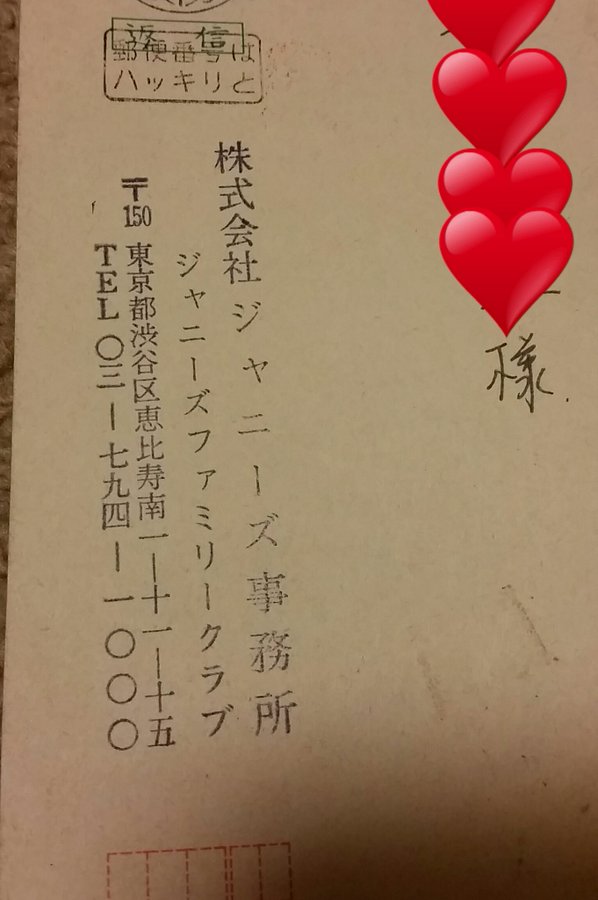 返信
郵便番号は
ハッキリと
様
株式会社ジャニーズ事務所
ジャニーズファミリークラブ
〒150 東京都渋谷区恵比寿南一ー十一ー十五
TEL〇三ー七九四ー一〇〇〇